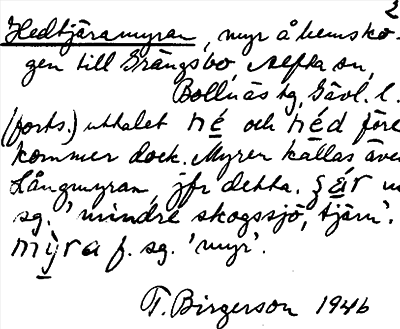 2
Hedtjäramyran, myr å hemsko-
gen till Grängsbo, Alfta sn,
Bollnäs tg, Gävl. l.
(forts.) uttalet né och néd före
kommer dock. Myren kallas äve
Långmyran, jfr detta.
sg. 'mindre skogssjö, tjärn'.
mỳra f. sg. 'myr'.
T. Birgerson 1946